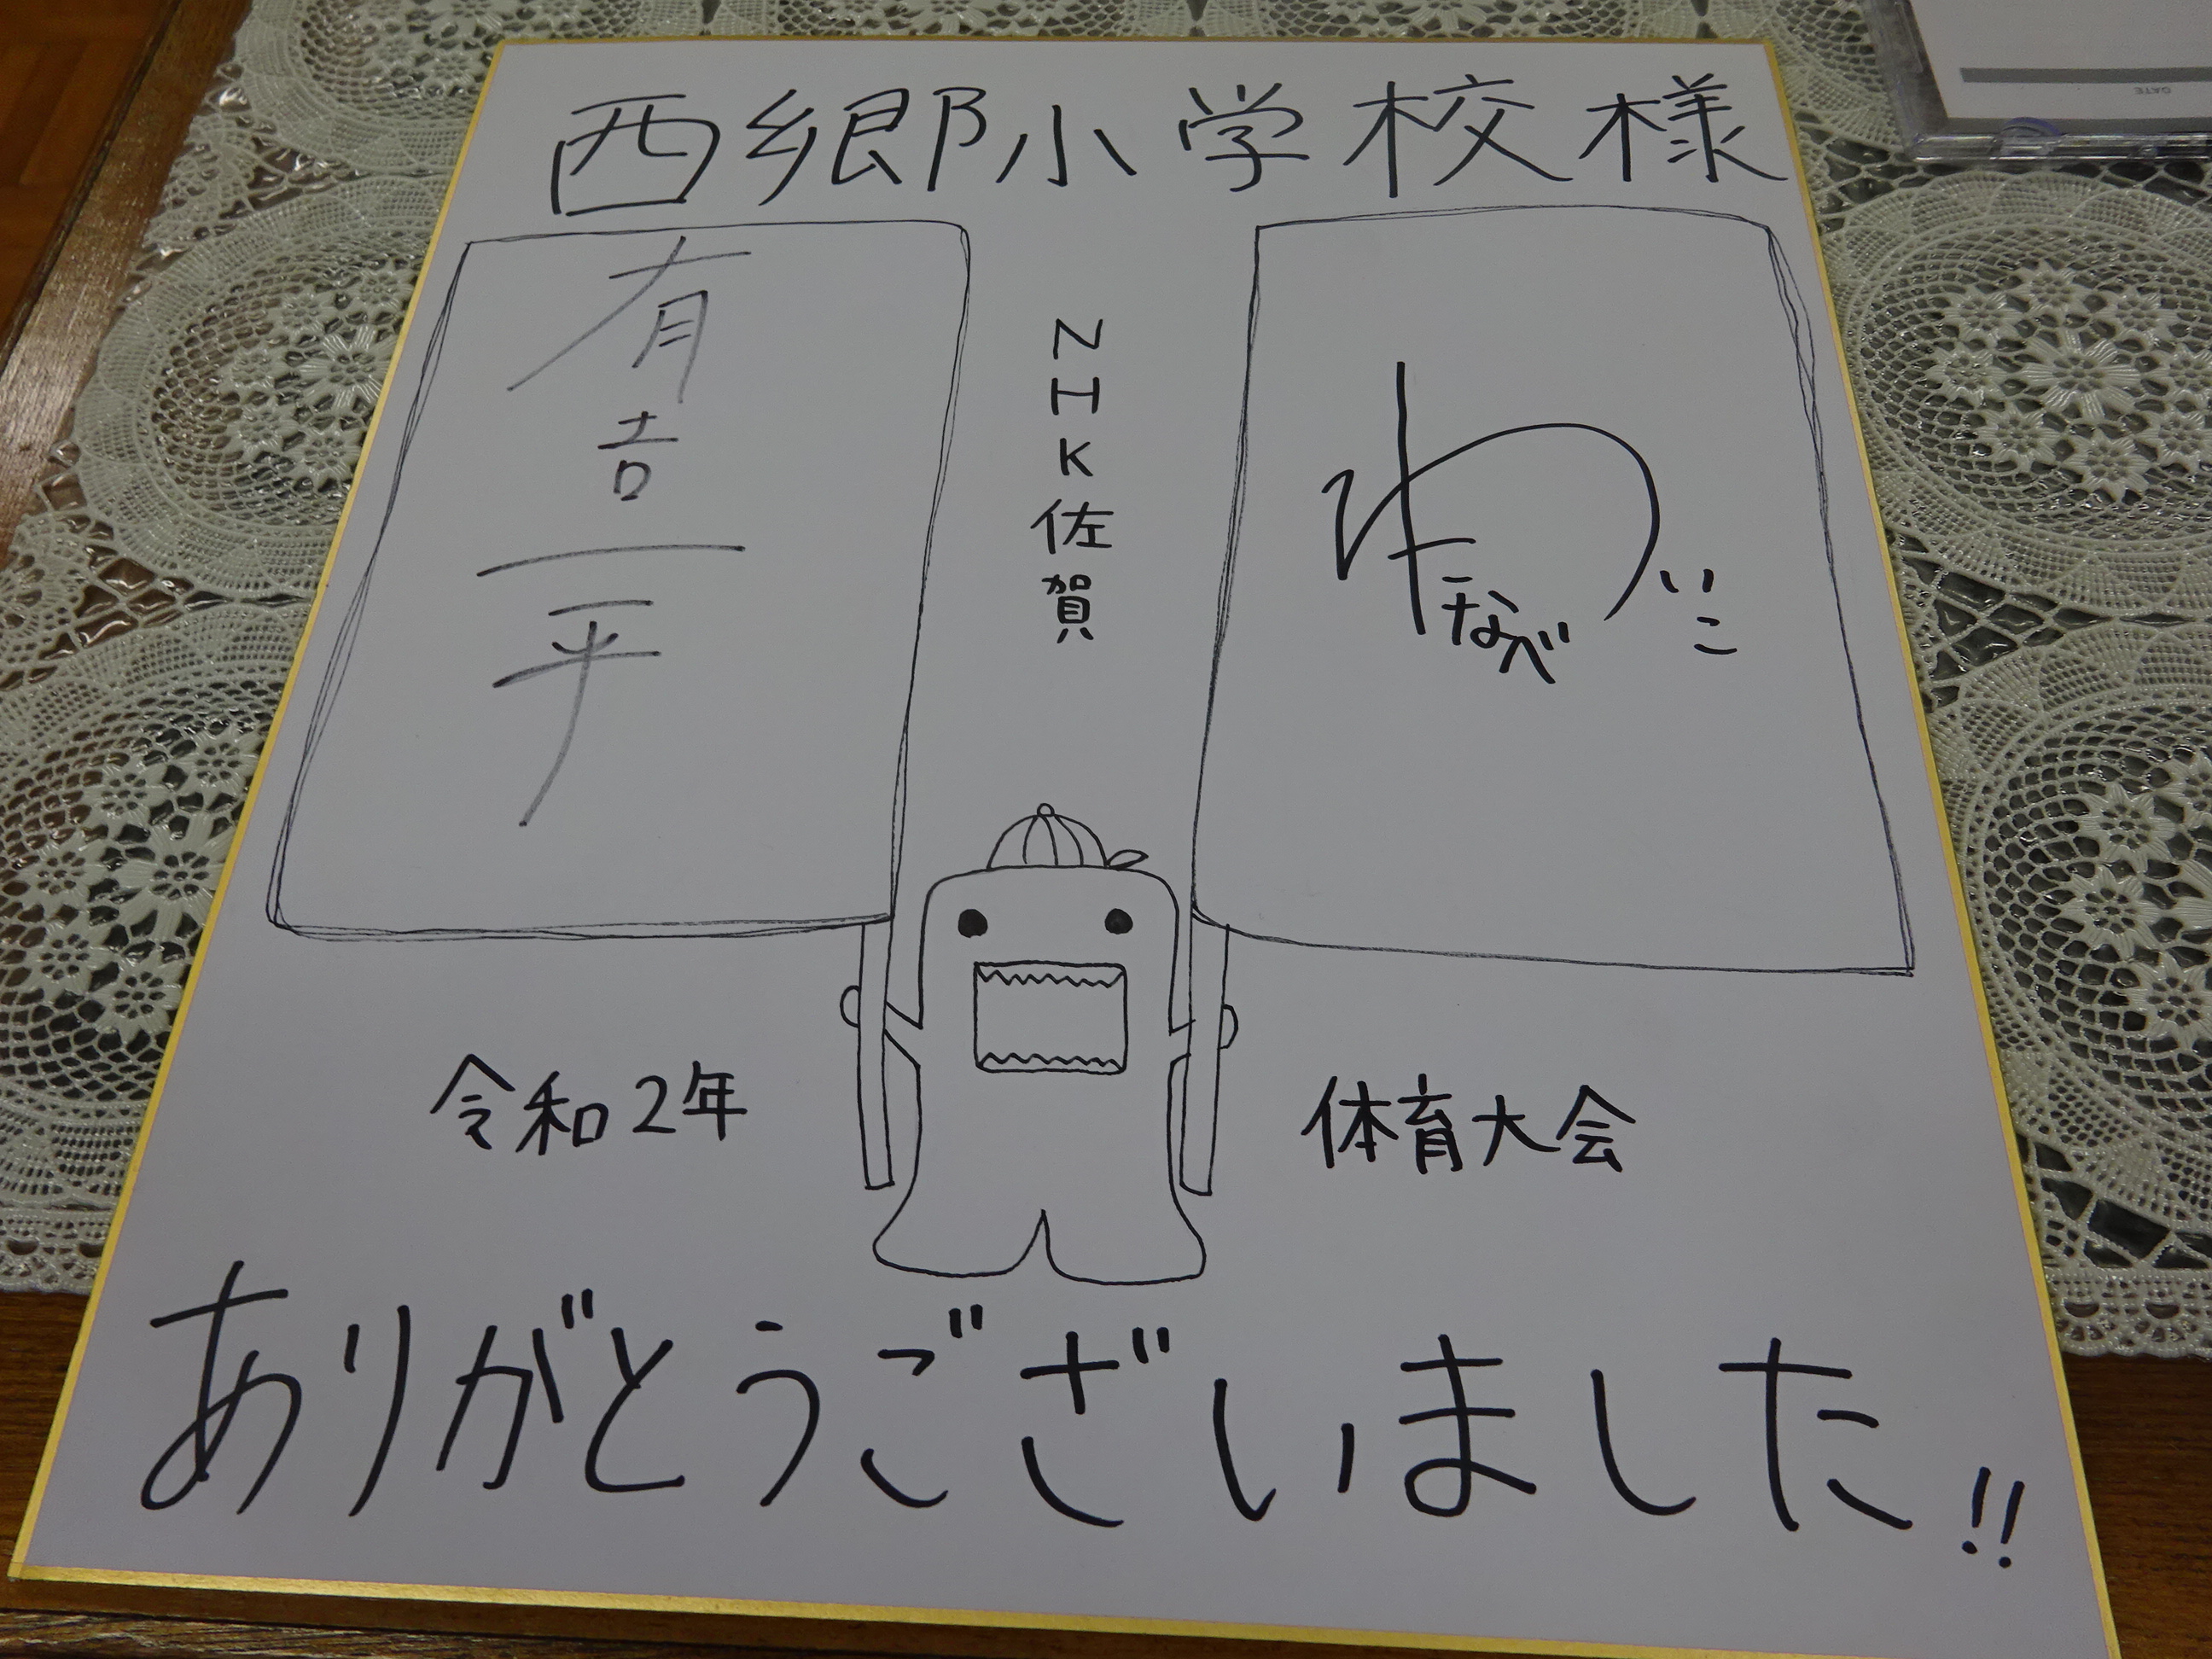 西郷小学校様
わたなべいこ
NHK佐賀
有吉一平
令和2年
体育大会
ありがとうございました!!
DATE